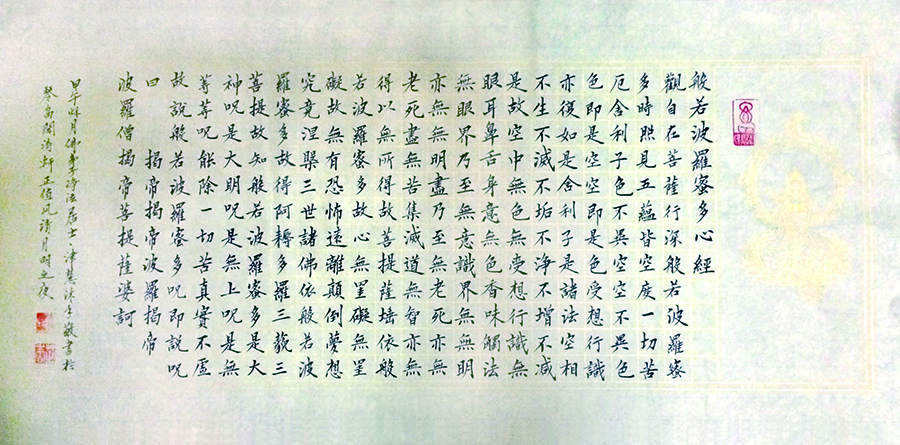 般若波羅蜜多心經
觀自在菩薩行深般若波羅蜜
多時照見五蘊皆空度一切苦
厄舍利子色不異空空不異色
色即是空空即是色受想行識
亦復如是舍利子是諸法空相
不生不滅不垢不淨不增不減
是故空中無色無受想行識無
眼耳鼻舌身意無色香味觸法
無眼界乃至無意識界無無明
亦無無明盡乃至無老死亦無
老死盡無苦集滅道無智亦無
得以無所得故菩提薩埵依般
若波羅蜜多故心無罣礙無罣
礙故無有恐怖遠離顛倒夢想
究竟涅槃三世諸佛依般若波
羅蜜多故得阿耨多羅三藐三
菩提故知般若波羅蜜多是大
神呪是大明呪是無上呪是無
等等呪能除一切苦真實不虛
故說般若波羅蜜多呪即說呪
曰 揭帝揭帝波羅揭帝
波羅僧揭帝菩提薩婆訶
甲午月佛弟子法居士津慧沐手敬書於
琴閣清軒正值風清月明之夜